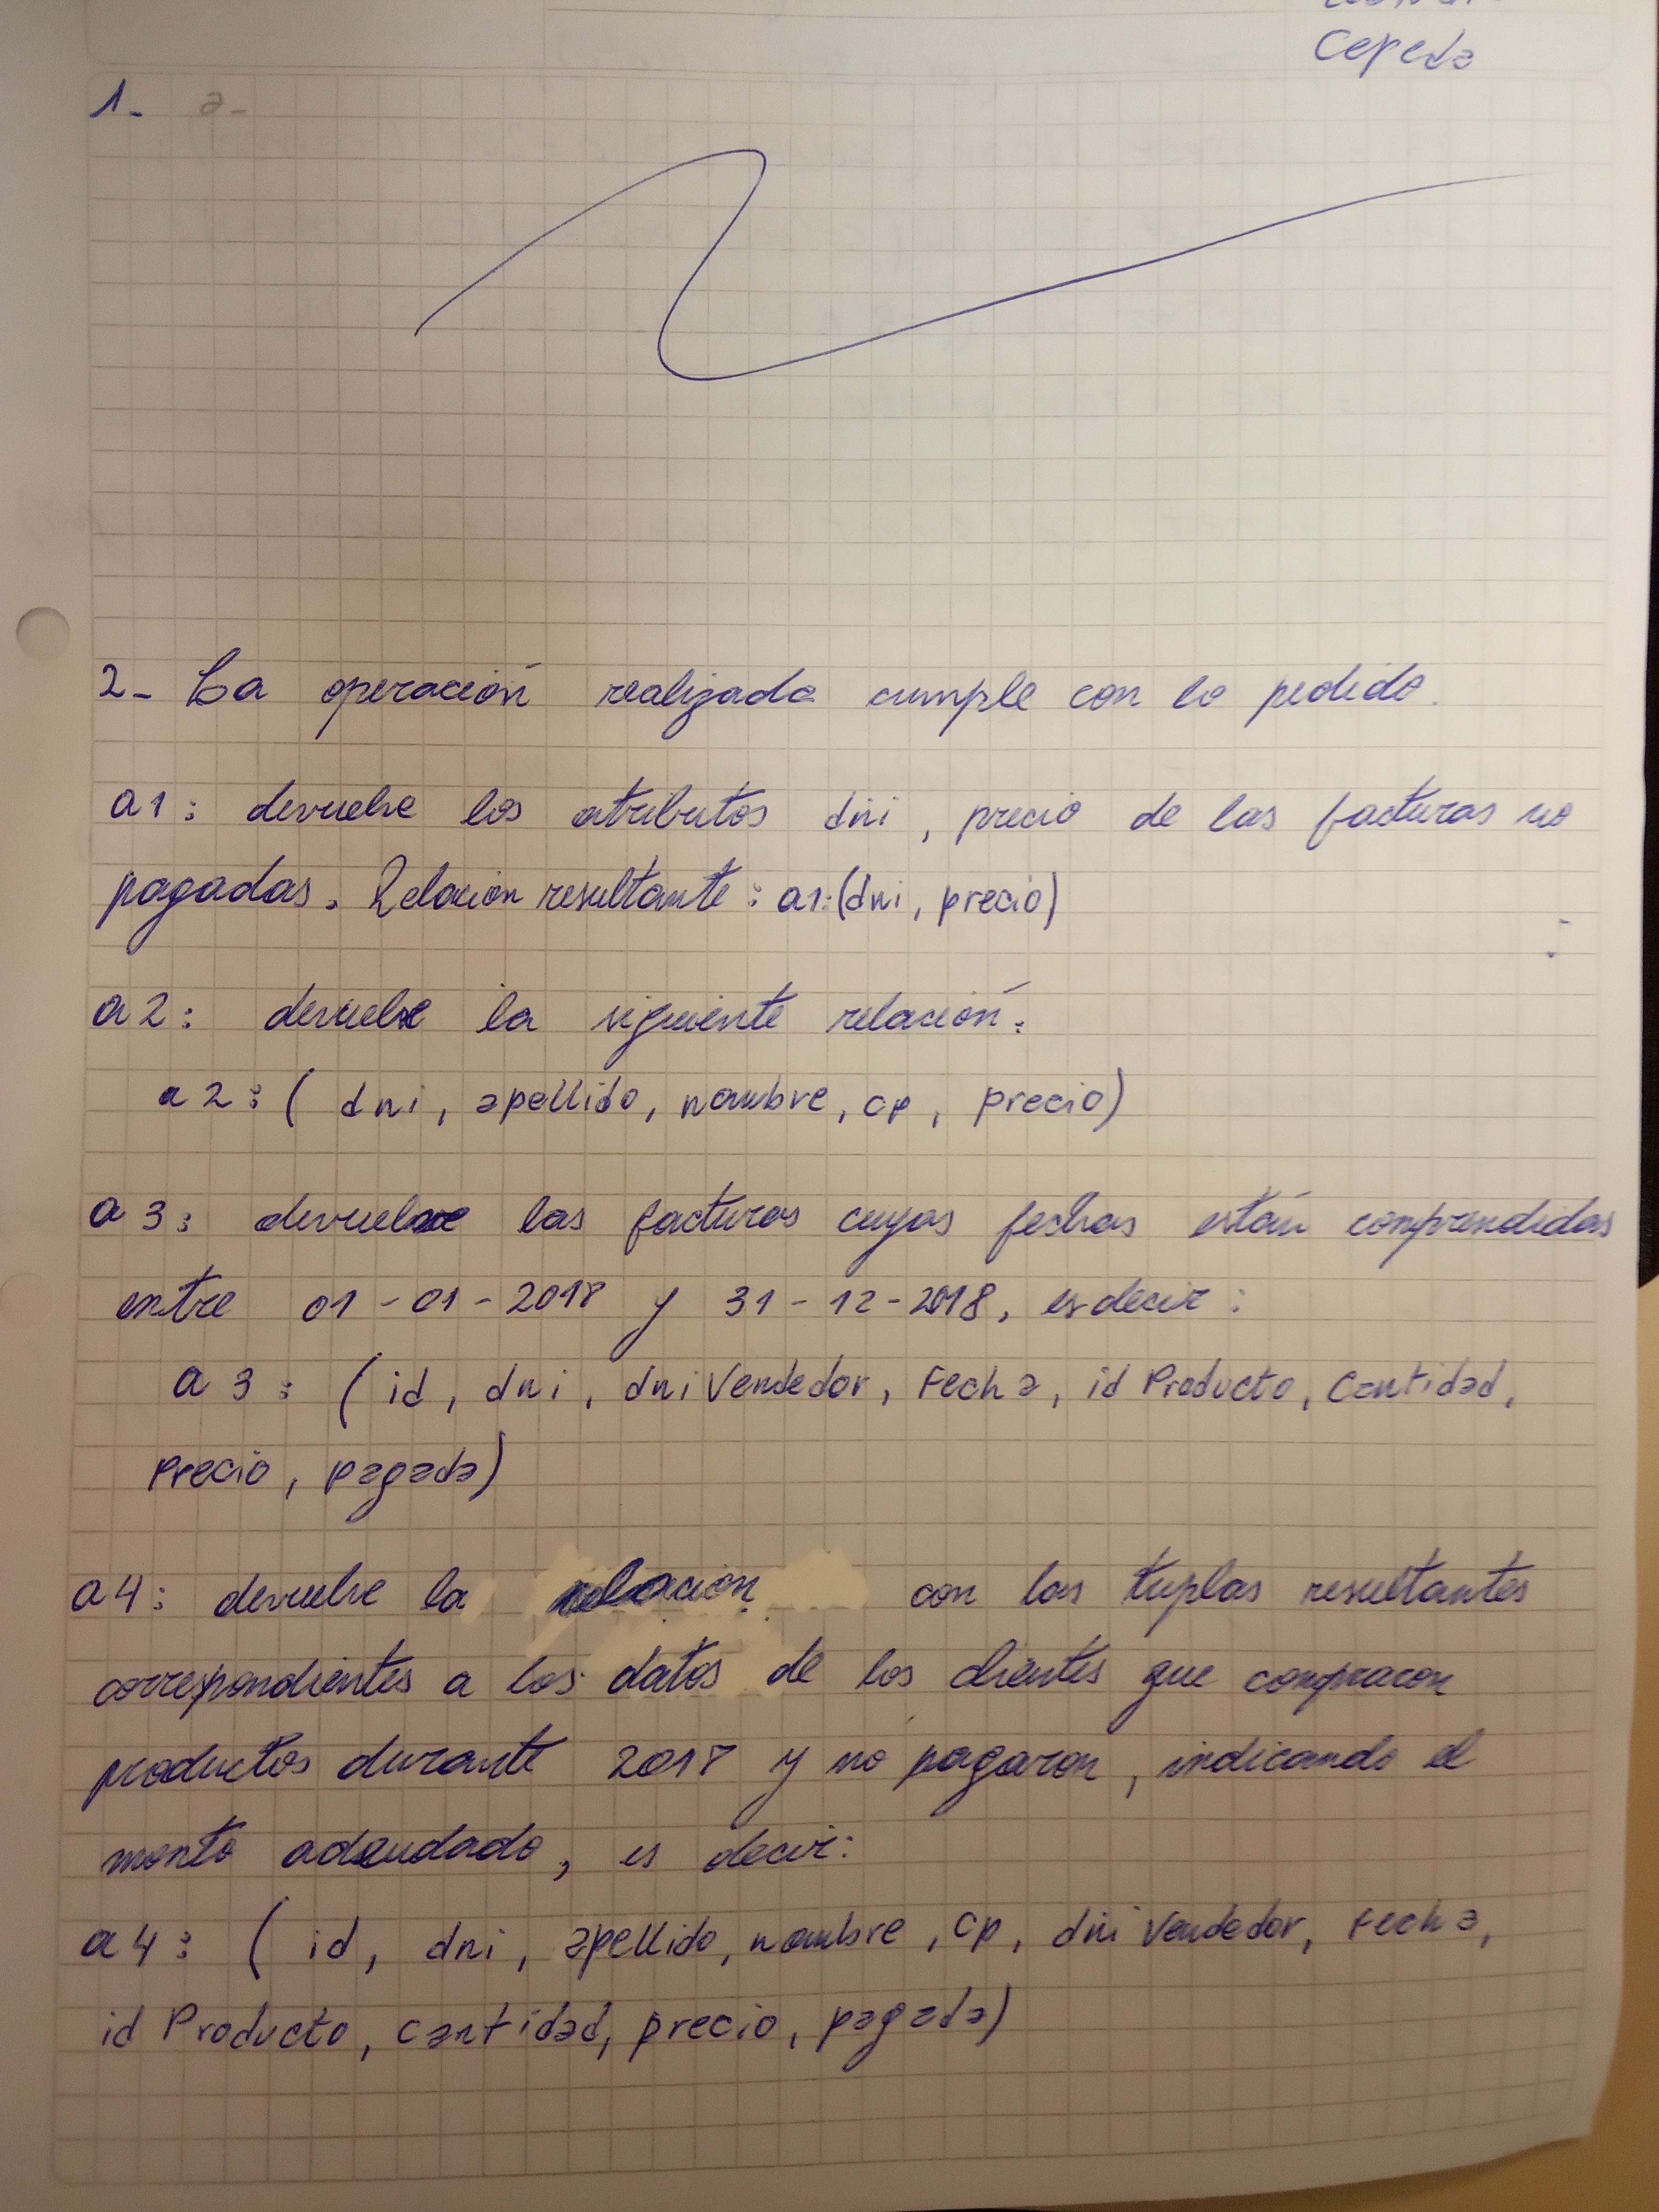 Cepeda
1- a-
2- La operación realizada cumple con lo pedido.
a1: devuelve los atributos dni, precio de las facturas no
pagadas. Relación resultante: a1:(dni, precio)
a2: devuelve la siguiente relación:
a2: (dni, apellido, nombre, cp, precio)
a3: devuelve las facturas cuyas fechas están comprendidas
entre 01-01-2018 y 31-12-2018, es decir:
a3: (id, dni, dniVendedor, Fecha, idProducto, Cantidad,
Precio, pagada)
a4: devuelve la relación con las tuplas resultantes
correspondientes a los datos de los clientes que compraron
productos durante 2018 y no pagaron, indicando el
monto adeudado, es decir:
a4: (id, dni, apellido, nombre, cp, dniVendedor, Fecha,
idProducto, cantidad, precio, pagada)